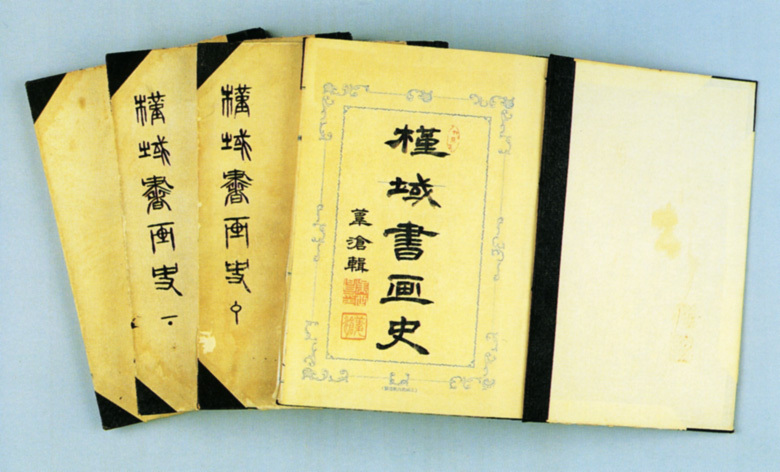 槿域書画史 下
槿域書画史
槿域書画史
葦滄輯